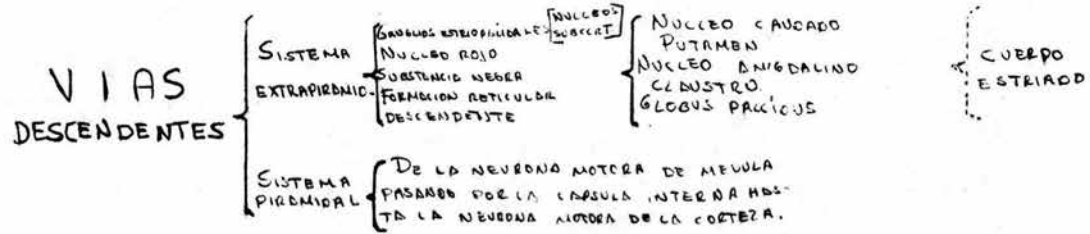 VIAS
DESCENDENTES
SISTEMA
EXTRAPIRAMID-
GANGLIOS ESTRIOPALIDALES
NUCLEOS
SUBCORT
NUCLEO ROJO
SUBSTANCIA NEGRA
FORMACION RETICULAR
DESCENDENTE
NUCLEO CAUDADO
PUTAMEN
NUCLEO AMIGDALINO
CLAUSTRO.
GLOBUS PALLIDUS
CUERPO
ESTRIADO
SISTEMA
PIRAMIDAL
DE LA NEURONA MOTORA DE MEDULA
PASANDO POR LA CAPSULA INTERNA HAS-
TA LA NEURONA MOTORA DE LA CORTEZA.